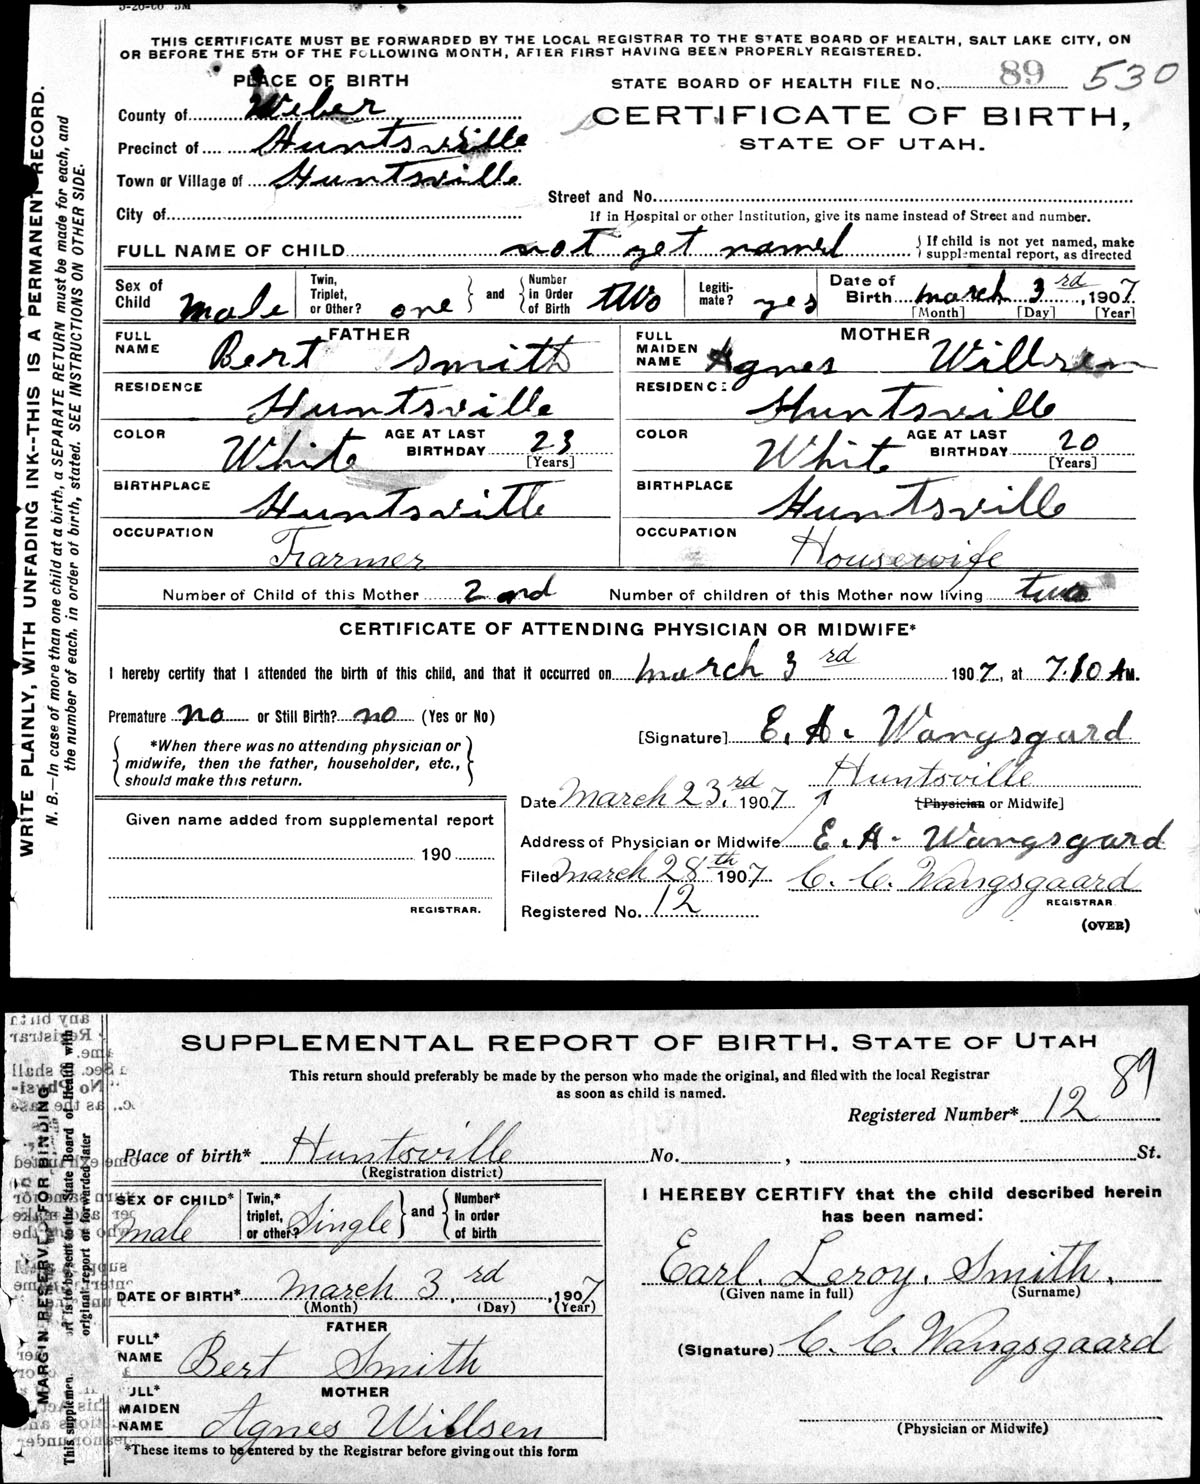 3-20-06 5M
THIS CERTIFICATE MUST BE FORWARDED BY THE LOCAL REGISTRAR TO THE STATE BOARD OF HEALTH, SALT LAKE CITY, ON
OR BEFORE THE 5TH OF THE FOLLOWING MONTH, AFTER FIRST HAVING BEEN PROPERLY REGISTERED.
WRITE PLAINLY, WITH UNFADING INK--THIS IS A PERMANENT RECORD.
N. B.—In case of more than one child at a birth, a SEPARATE RETURN must be made for each, and
the number of each, in order of birth, stated. SEE INSTRUCTIONS ON OTHER SIDE.
PLACE OF BIRTH
County of Weber
Precinct of Huntsville
Town or Village of Huntsville
City of
STATE BOARD OF HEALTH FILE No. 89 530
CERTIFICATE OF BIRTH,
STATE OF UTAH.
Street and No.
If in Hospital or other Institution, give its name instead of Street and number.
FULL NAME OF CHILD not yet named { If child is not yet named, make
supplemental report, as directed
Sex of Child male Twin, Triplet, or Other? one } and { Number in Order of Birth two Legitimate? yes Date of Birth march 3rd, 1907
[Month] [Day] [Year]
FATHER
FULL NAME Bert Smith
RESIDENCE Huntsville
COLOR White AGE AT LAST BIRTHDAY 23
[Years]
BIRTHPLACE Huntsville
OCCUPATION Farmer
MOTHER
FULL MAIDEN NAME Agnes Willsen
RESIDENCE Huntsville
COLOR White AGE AT LAST BIRTHDAY 20
[Years]
BIRTHPLACE Huntsville
OCCUPATION Housewife
Number of Child of this Mother 2nd Number of children of this Mother now living two
CERTIFICATE OF ATTENDING PHYSICIAN OR MIDWIFE*
I hereby certify that I attended the birth of this child, and that it occurred on march 3rd 1907, at 7.10 A M.
Premature no or Still Birth? no (Yes or No)
{ *When there was no attending physician or
midwife, then the father, householder, etc.,
should make this return. }
[Signature] E. A. Wangsgard
Huntsville
Date March 23.rd 1907 [Physician or Midwife]
Address of Physician or Midwife E. A. Wangsgard
Filed March 28th 1907 C. C. Wangsgaard
REGISTRAR
Registered No. 12
(OVER)
Given name added from supplemental report
190
REGISTRAR.
SUPPLEMENTAL REPORT OF BIRTH, STATE OF UTAH
This return should preferably be made by the person who made the original, and filed with the local Registrar
as soon as child is named.
89
Registered Number* 12
Place of birth* Huntsville No. , St.
(Registration district)
SEX OF CHILD* male Twin,* triplet, or other? Single } and { Number* in order of birth
DATE OF BIRTH* March 3rd, 1907
(Month) (Day) (Year)
FATHER
FULL* NAME Bert Smith
MOTHER
FULL* MAIDEN NAME Agnes Willsen
*These items to be entered by the Registrar before giving out this form
I HEREBY CERTIFY that the child described herein
has been named:
Earl. Leroy. Smith.
(Given name in full) (Surname)
(Signature) C. C. Wangsgaard
(Physician or Midwife)
MARGIN RESERVED FOR BINDING